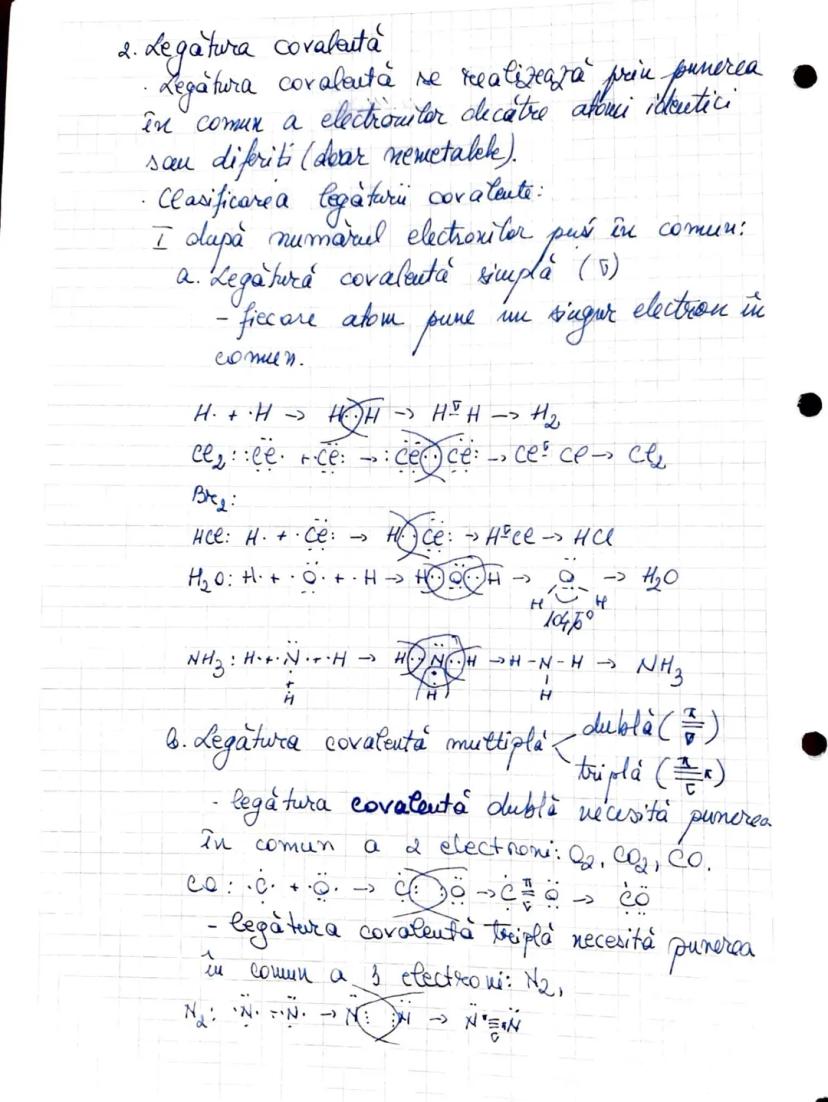 2. Legătura covalentă
· Legătura covalentă se realizează prin punerea
în comun a electronilor decătre atomi identici
sau diferiți (doar nemetalele).
· Clasificarea legăturii covalente:
I după numărul electronilor puși în comun:
a. Legătură covalentă simplă (σ)
- fiecare atom pune un singur electron în
comun.
H· + ·H → H··H → H σ- H → H₂
Cl₂: :C̈l· + ·C̈l: → :C̈l··C̈l: → Cl σ- Cl → Cl₂
Br₂:
HCl: H· + ·C̈l: → H··C̈l: → H σ- Cl → HCl
H₂O: H· + ·Ö· + ·H → H··Ö··H → O → H₂O
H H
104,5°
NH₃: H· + ·N̈· + ·H → H··N̈··H → H-N-H → NH₃
+
H H H
b. Legătura covalentă multiplă
dublă (π = σ)
triplă (π ≡ π σ)
- legătura covalentă dublă necesită punerea
în comun a 2 electroni: O₂, CO₂, CO.
CO: ·Ċ· + ·Ö· → Ċ: :Ö → Ċ π = σ Ö → ĊÖ
- legătura covalentă triplă necesită punerea
în comun a 3 electroni: N₂,
N₂: ·N̈· + ·N̈· → N̈⋮ ⋮N̈ → N̈ π ≡ π σ N̈